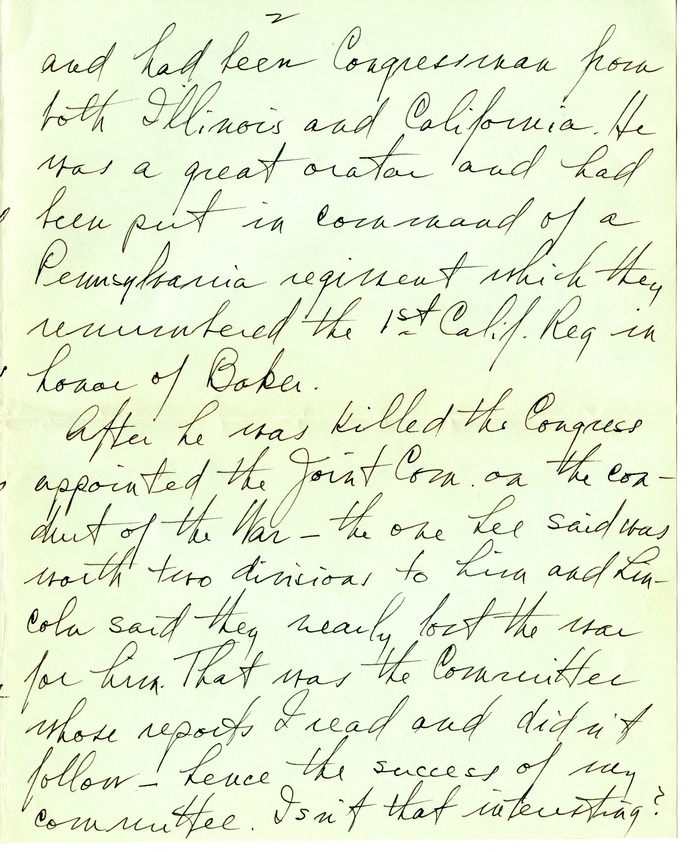 2
and had been Congressman from
both Illinois and California. He
was a great orator and had
been put in command of a
Pennsylvania regiment which they
renumbered the 1st Calif. Reg in
honor of Baker.
After he was killed the Congress
appointed the Joint Com. on the con-
duct of the War – the one Lee said was
worth two divisions to him and Lin-
coln said they nearly lost the war
for him. That was the Committee
whose reports I read and didn't
follow – hence the success of my
committee. Isn't that interesting?